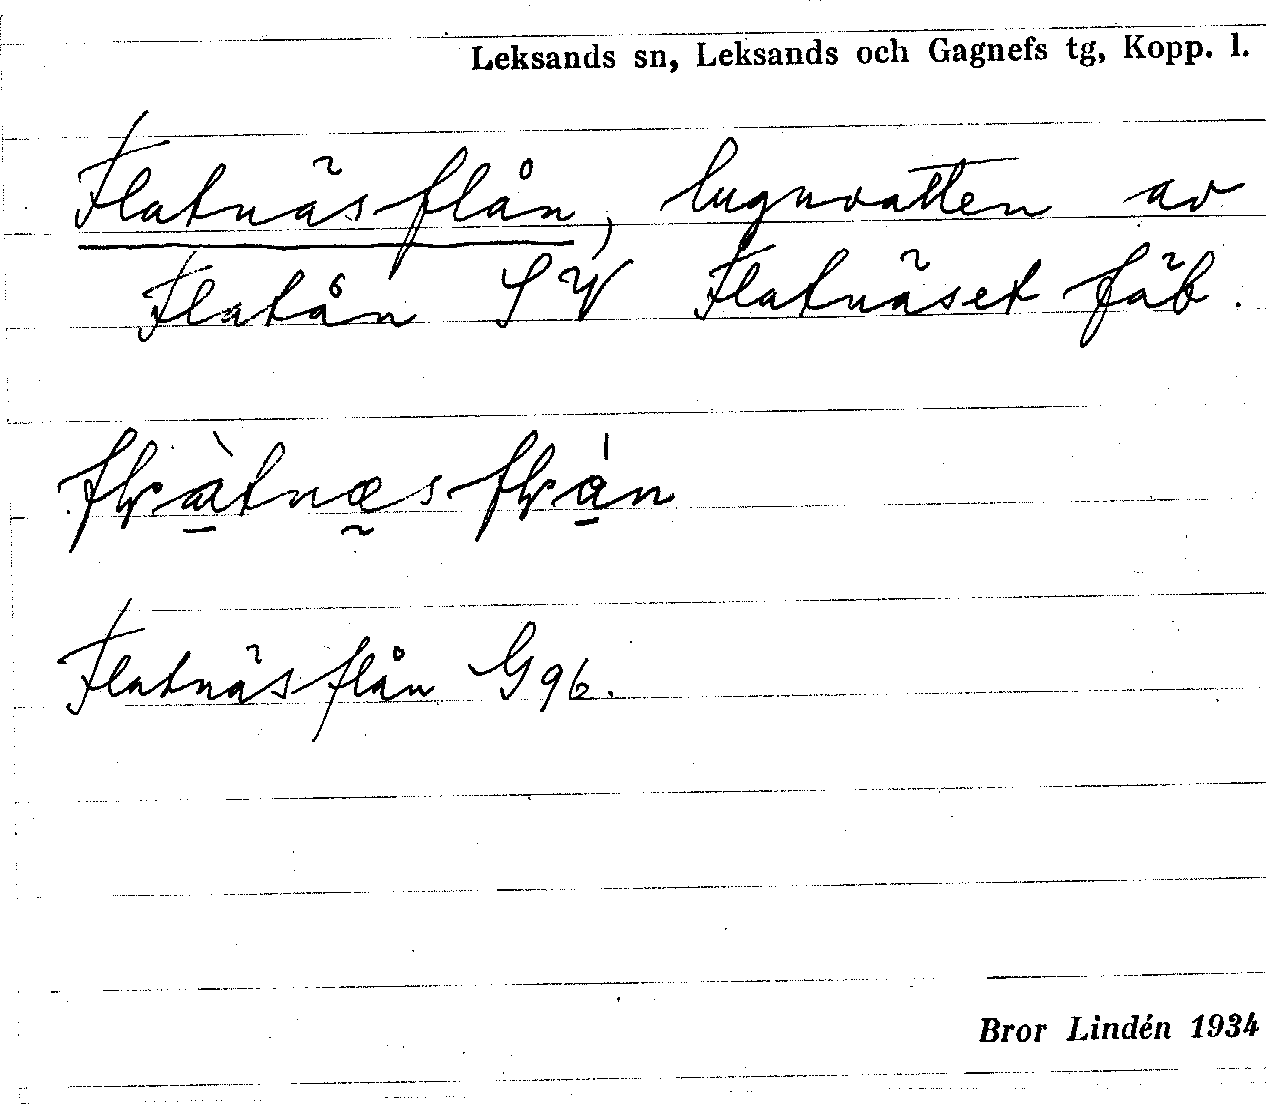 Leksands sn, Leksands och Gagnefs tg, Kopp. l.
Flatnäsflån, lugnvatten av
Flatån SV Flatnäset fäb.
Flatnäsflån G96.
Bror Lindén 1934